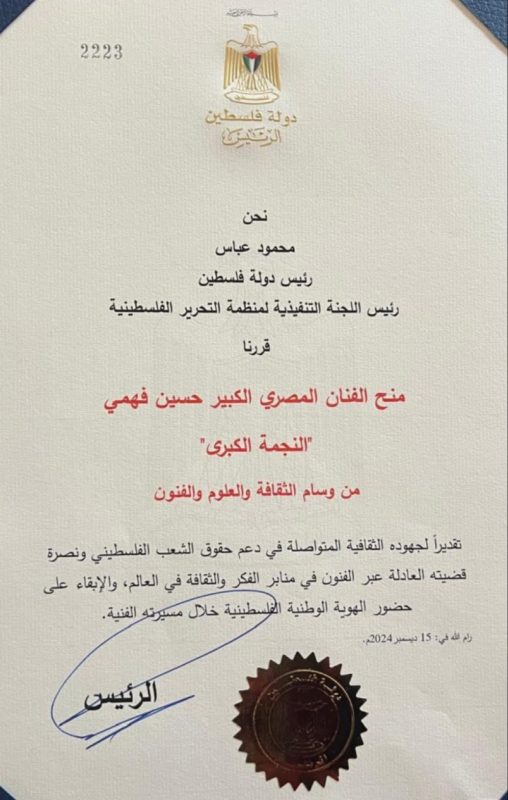 2223
فلسطين
دولة فلسطين
الرئيس
نحن
محمود عباس
رئيس دولة فلسطين
رئيس اللجنة التنفيذية لمنظمة التحرير الفلسطينية
قررنا
منح الفنان المصري الكبير حسين فهمي
"النجمة الكبرى"
من وسام الثقافة والعلوم والفنون
تقديراً لجهوده الثقافية المتواصلة في دعم حقوق الشعب الفلسطيني ونصرة
قضيته العادلة عبر الفنون في منابر الفكر والثقافة في العالم، والإبقاء على
حضور الهوية الوطنية الفلسطينية خلال مسيرته الفنية.
رام الله في: 15 ديسمبر2024م.
الرئيس
دولة فلسطين